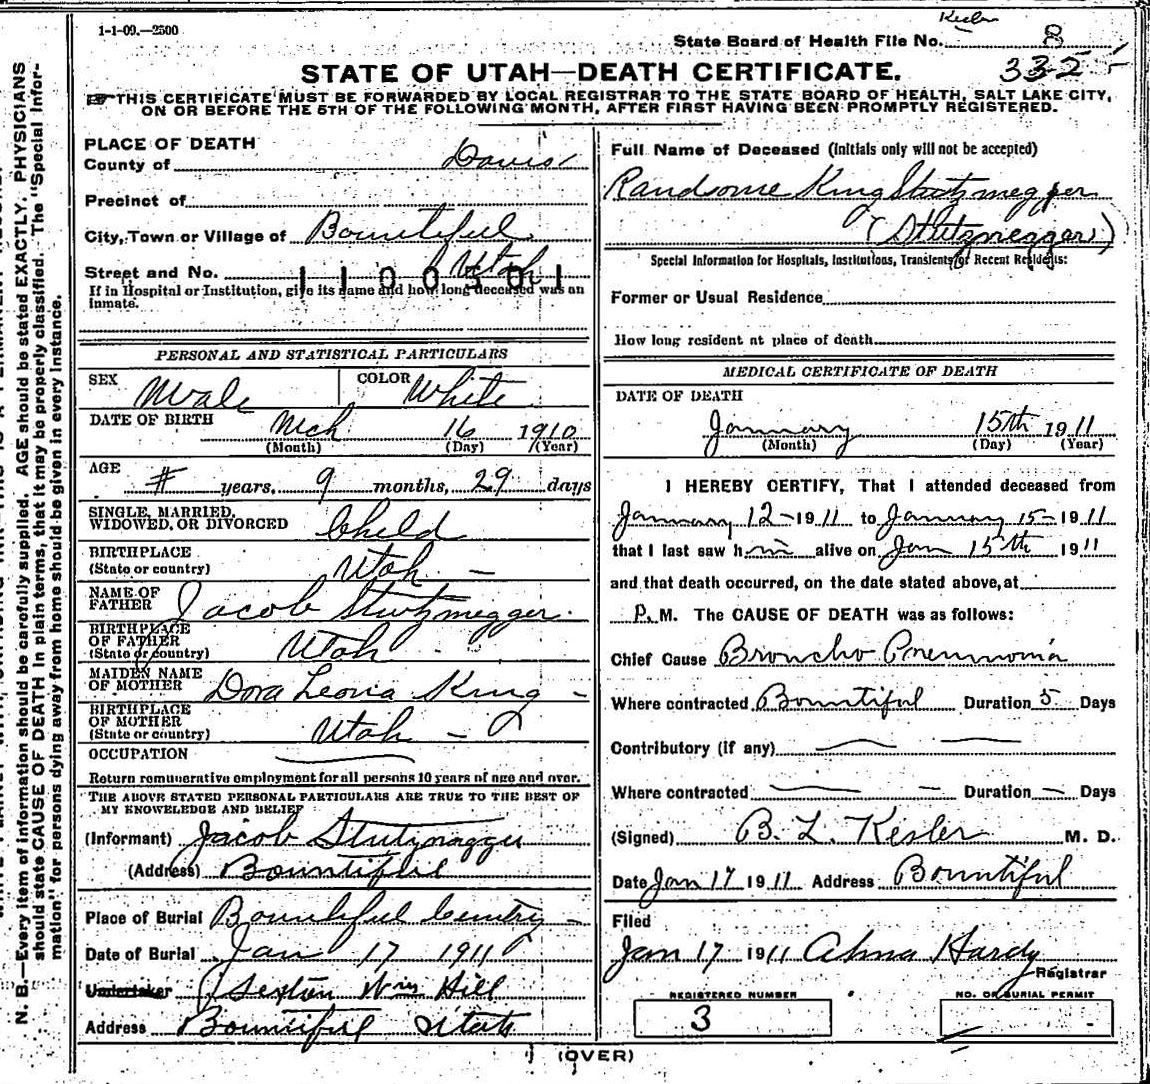 1-1-09.—2500
Kesler
State Board of Health File No. 8
3325
STATE OF UTAH—DEATH CERTIFICATE.
☞THIS CERTIFICATE MUST BE FORWARDED BY LOCAL REGISTRAR TO THE STATE BOARD OF HEALTH, SALT LAKE CITY,
ON OR BEFORE THE 5TH OF THE FOLLOWING MONTH, AFTER FIRST HAVING BEEN PROMPTLY REGISTERED.
PLACE OF DEATH
County of Davis
Precinct of
City, Town or Village of Bountiful
Utah
Street and No.
If in Hospital or Institution, give its name and how long deceased was an
inmate.
PERSONAL AND STATISTICAL PARTICULARS
SEX Male COLOR White
DATE OF BIRTH Mch 16 1910
(Month) (Day) (Year)
AGE # years, 9 months, 29 days
SINGLE, MARRIED,
WIDOWED, OR DIVORCED Child
BIRTHPLACE
(State or country) Utah —
NAME OF
FATHER Jacob Stutzmegger.
BIRTHPLACE
OF FATHER
(State or country) Utah
MAIDEN NAME
OF MOTHER Dora Leona King -
BIRTHPLACE
OF MOTHER
(State or country) Utah —
OCCUPATION
Return remunerative employment for all persons 10 years of age and over.
THE ABOVE STATED PERSONAL PARTICULARS ARE TRUE TO THE BEST OF
MY KNOWLEDGE AND BELIEF
(Informant) Jacob
(Address) Bountiful
Place of Burial Bountiful
Date of Burial Jan 17 1911
Undertaker Sexton Wm Hill
Address Bountiful Utah
Full Name of Deceased (Initials only will not be accepted)
Randsome King Stutzmegger
(Stutznegger)
Special Information for Hospitals, Institutions, Transients or Recent Residents:
Former or Usual Residence
How long resident at place of death
MEDICAL CERTIFICATE OF DEATH
DATE OF DEATH
January 15th 1911
(Month) (Day) (Year)
I HEREBY CERTIFY, That I attended deceased from
January 12 - 1911 to January 15 - 1911
that I last saw him alive on Jan 15th 1911
and that death occurred, on the date stated above, at
P. M. The CAUSE OF DEATH was as follows:
Chief Cause Broncho Pneumonia
Where contracted Bountiful Duration 5 Days
Contributory (if any)
Where contracted Duration — Days
(Signed) B. L. Kesler M. D.
Date Jan 17 1911 Address Bountiful
Filed
Jan 17 1911 Alma Hardy
Registrar
REGISTERED NUMBER
3
NO. OF BURIAL PERMIT
(OVER)
N. B.—Every item of information should be carefully supplied. AGE should be stated EXACTLY. PHYSICIANS
should state CAUSE OF DEATH in plain terms, that it may be properly classified. The "Special Infor-
mation" for persons dying away from home should be given in every instance.